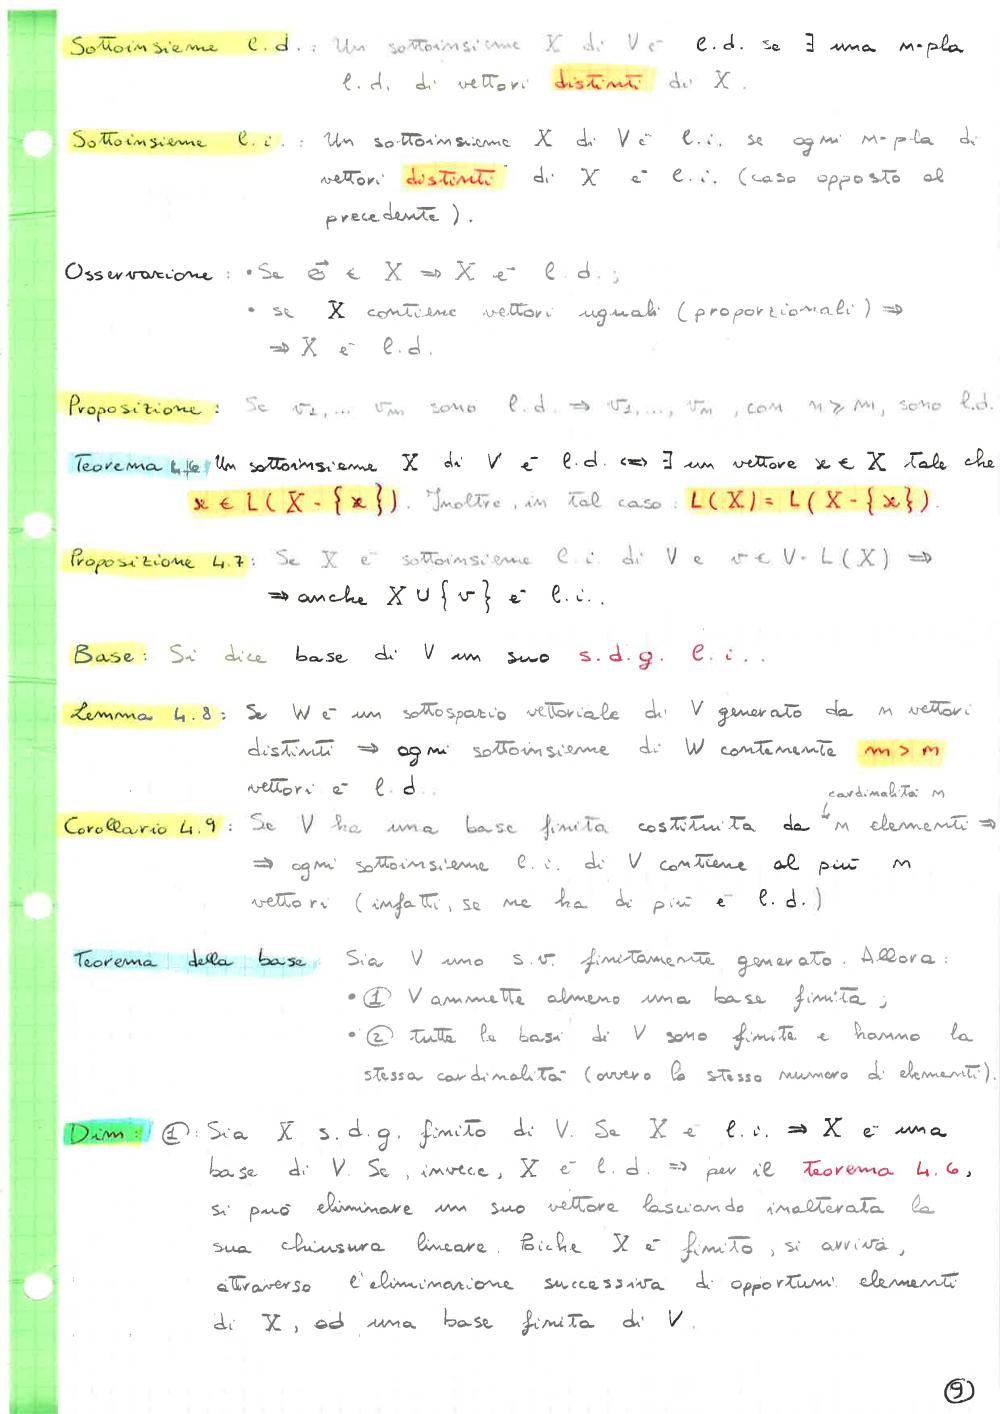 Sottoinsieme l.d.: Un sottoinsieme X di V è l.d. se ∃ una n-pla
l.d. di vettori distinti di X.
Sottoinsieme l.i.: Un sottoinsieme X di V è l.i. se ogni n-pla di
vettori distinti di X è l.i. (caso opposto al
precedente).
Osservazione: • Se o⃗ ∈ X ⇒ X è l.d.;
• se X contiene vettori uguali (proporzionali) ⇒
⇒ X è l.d.
Proposizione: Se v1,... vm sono l.d. ⇒ v1,..., vn, con n ≥ m, sono l.d.
Teorema 4.6 Un sottoinsieme X di V è l.d. ⇔ ∃ un vettore x ∈ X tale che
x ∈ L(X - {x}). Inoltre, in tal caso: L(X) = L(X - {x}).
Proposizione 4.7: Se X è sottoinsieme l.i. di V e v ∈ V - L(X) ⇒
⇒ anche X ∪ {v} è l.i..
Base: Si dice base di V un suo s.d.g. l.i..
Lemma 4.8: Se W è un sottospazio vettoriale di V generato da n vettori
distinti ⇒ ogni sottoinsieme di W contenente m > n
vettori è l.d..
cardinalità n
Corollario 4.9: Se V ha una base finita costituita da n elementi ⇒
⇒ ogni sottoinsieme l.i. di V contiene al più n
vettori (infatti, se ne ha di più è l.d.)
Teorema della base: Sia V uno s.v. finitamente generato. Allora:
• ① V ammette almeno una base finita;
• ② tutte le basi di V sono finite e hanno la
stessa cardinalità (ovvero lo stesso numero di elementi).
Dim: ①: Sia X s.d.g. finito di V. Se X è l.i. ⇒ X è una
base di V. Se, invece, X è l.d. ⇒ per il teorema 4.6,
si può eliminare un suo vettore lasciando inalterata la
sua chiusura lineare. Poiché X è finito, si arriva,
attraverso l'eliminazione successiva di opportuni elementi
di X, ad una base finita di V.
⑨